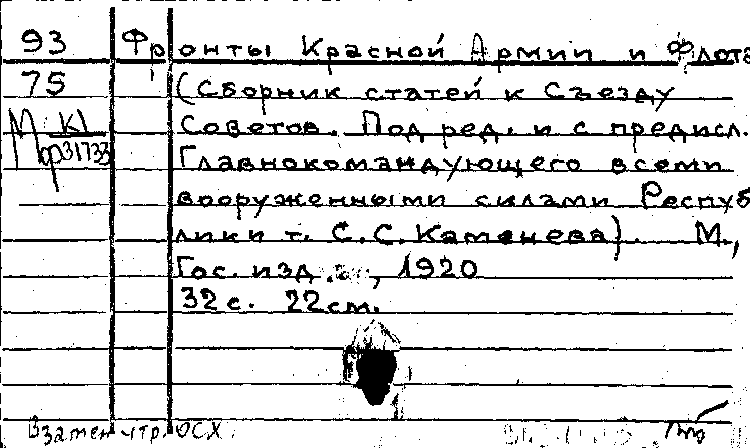 93 Фронты Красной Армии и Флота
75 (Сборник статей к Съезду
К1 Советов. Под ред. и с предисл.
Мор31733 Главнокомандующего всеми
вооруженными силами Респуб
лики т. С.С. Каменева). М.,
Гос. изд., 1920
32 с. 22 см.
Взамен утр. ОСХ.